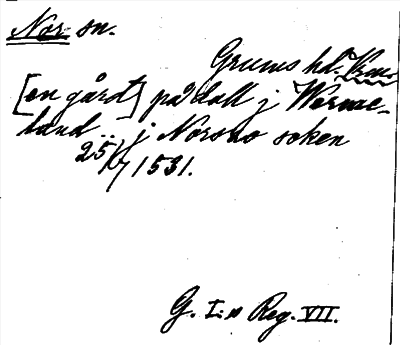 Nor sn.
Grums hd. Vrm.
[en gård] på dall j Werme-
land .. j Norsno soken
25/7 1531.
G. I:s Reg. VII.